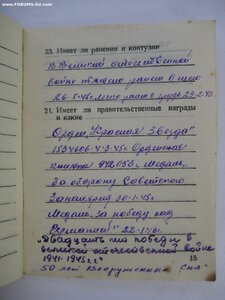 FORUMS-SU.com
23. Имеет ли ранения и контузии
В Великой отечественной
войне тяжело ранен в шею
26-5-45г легко ранен в грудь 22-2-43.
21. Имеет ли правительственные награды
и какие
Орден "Красная Звезда"
1534606-4-3-45г Орденская
книжка Медаль
За оборону Советского
Заполярия 30-1-46г
Медаль За победу над
Германией" 22-1-46г.
"Двадцать лет победы в
великой отечественной войне
1941-1945 г.г."
15
50 лет Вооруженных Сил"